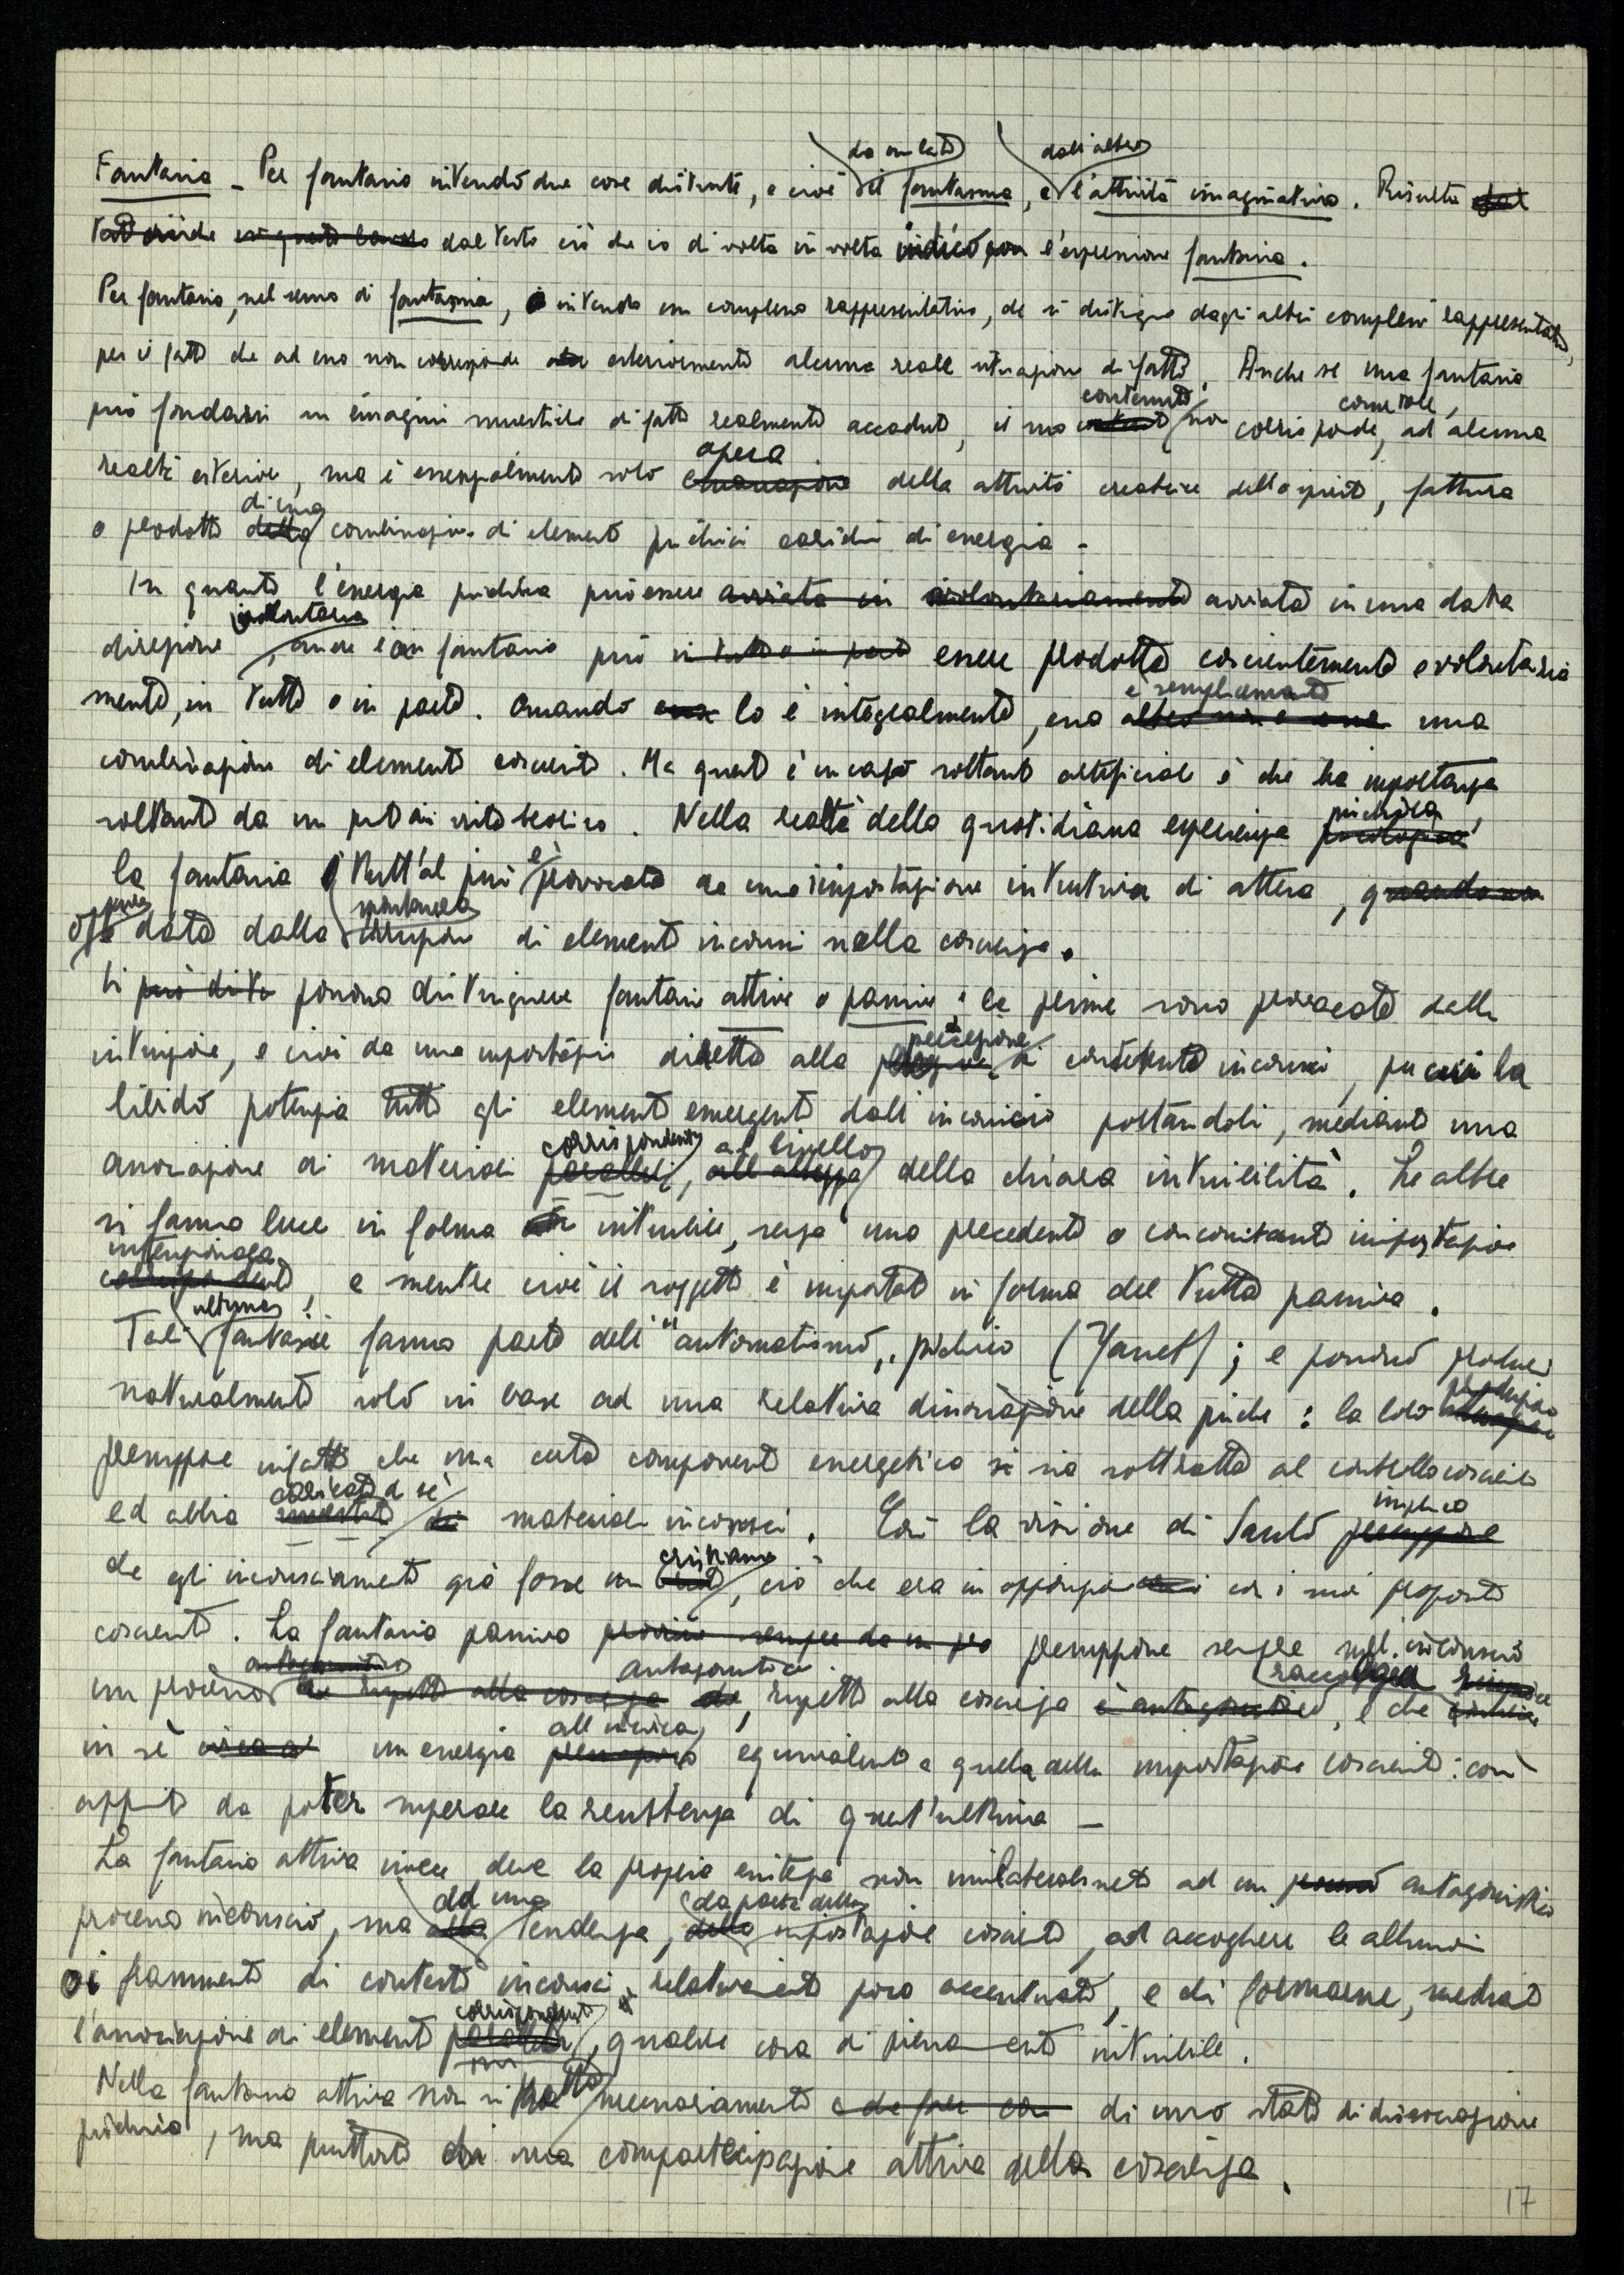 Fantasia – Per fantasia intendo due cose distinte, e cioè da un lato il fantasma, e dall'altro l'attività imaginativa. Risulta
dal testo ciò che io di volta in volta indico con l'espressione fantasia.
Per fantasia, nel senso di fantasma, intendo un complesso rappresentativo, che si distingue dagli altri complessi rappresentativi,
per il fatto che ad esso non corrisponde esteriormente alcuna reale situazione di fatto. Anche se una fantasia
può fondarsi su imagini mnestiche di fatti realmente accaduti, il suo contenuto non corrisponde, come tale, ad alcuna
realtà esteriore, ma è essenzialmente solo opera della attività creatrice dello spirito, fattura
o prodotto di una combinazione di elementi psichici carichi di energia –
In quanto l'energia psichica può essere avviata in una data
direzione volontaria, anche la fantasia può essere prodotta coscientemente e volontaria
mente, in tutto o in parte. Quando lo è integralmente, essa è semplicemente una
combinazione di elementi coscienti. Ma questo è un caso soltanto artificiale e che ha importanza
soltanto da un punto di vista teorico. Nella realtà della quotidiana esperienza psichica,
la fantasia è tutt'al più provocata da una impostazione intuitiva di attesa,
oppure è data dalla spontanea irruzione di elementi inconsci nella coscienza.
Si possono distinguere fantasie attive e passive; le prime sono provocate dalla
intuizione, e cioè da una impostazione diretta alla percezione di contenuti inconsci, per cui la
libido potenzia tutti gli elementi emergenti dall'inconscio portandoli, mediante una
associazione di materiali corrispondenti, al livello della chiara intuibilità. Le altre
si fanno luce in forma intuibile, senza una precedente o concomitante impostazione
intenzionale, e mentre cioè il soggetto è impostato in forma del tutto passiva.
Tali ultime fantasie fanno parte dell'"automatismo" psichico (Janet); e possono prodursi
naturalmente solo in base ad una relativa dissociazione della psiche: la loro produzione
presuppone infatti che una certa componente energetica si sia sottratta al controllo cosciente
ed abbia caricato di sé materiali inconsci. Così la visione di Saulo implica
che egli inconsciamente già fosse un cristiano, ciò che era in opposizione con i suoi propositi
coscienti. La fantasia passiva presuppone sempre nell'inconscio
un processo antagonistico rispetto alla coscienza, e che raccolga
in sè un energia all'incirca equivalente a quella della impostazione cosciente: così
appunto da poter superare la resistenza di quest'ultima –
La fantasia attiva invece deve la propria esistenza non unilateralmente ad un antagonistico
processo inconscio, ma ad una tendenza, da parte della impostazione cosciente, ad accogliere le allusioni
o i frammenti di contesti inconsci relativamente poco accentuati, e di formarne, mediante
l'associazione di elementi corrispondenti, qualche cosa di pienamente intuibile.
Nella fantasia attiva non si tratta necessariamente di uno stato di dissociazione
psichica, ma piuttosto di una compartecipazione attiva della coscienza.
17